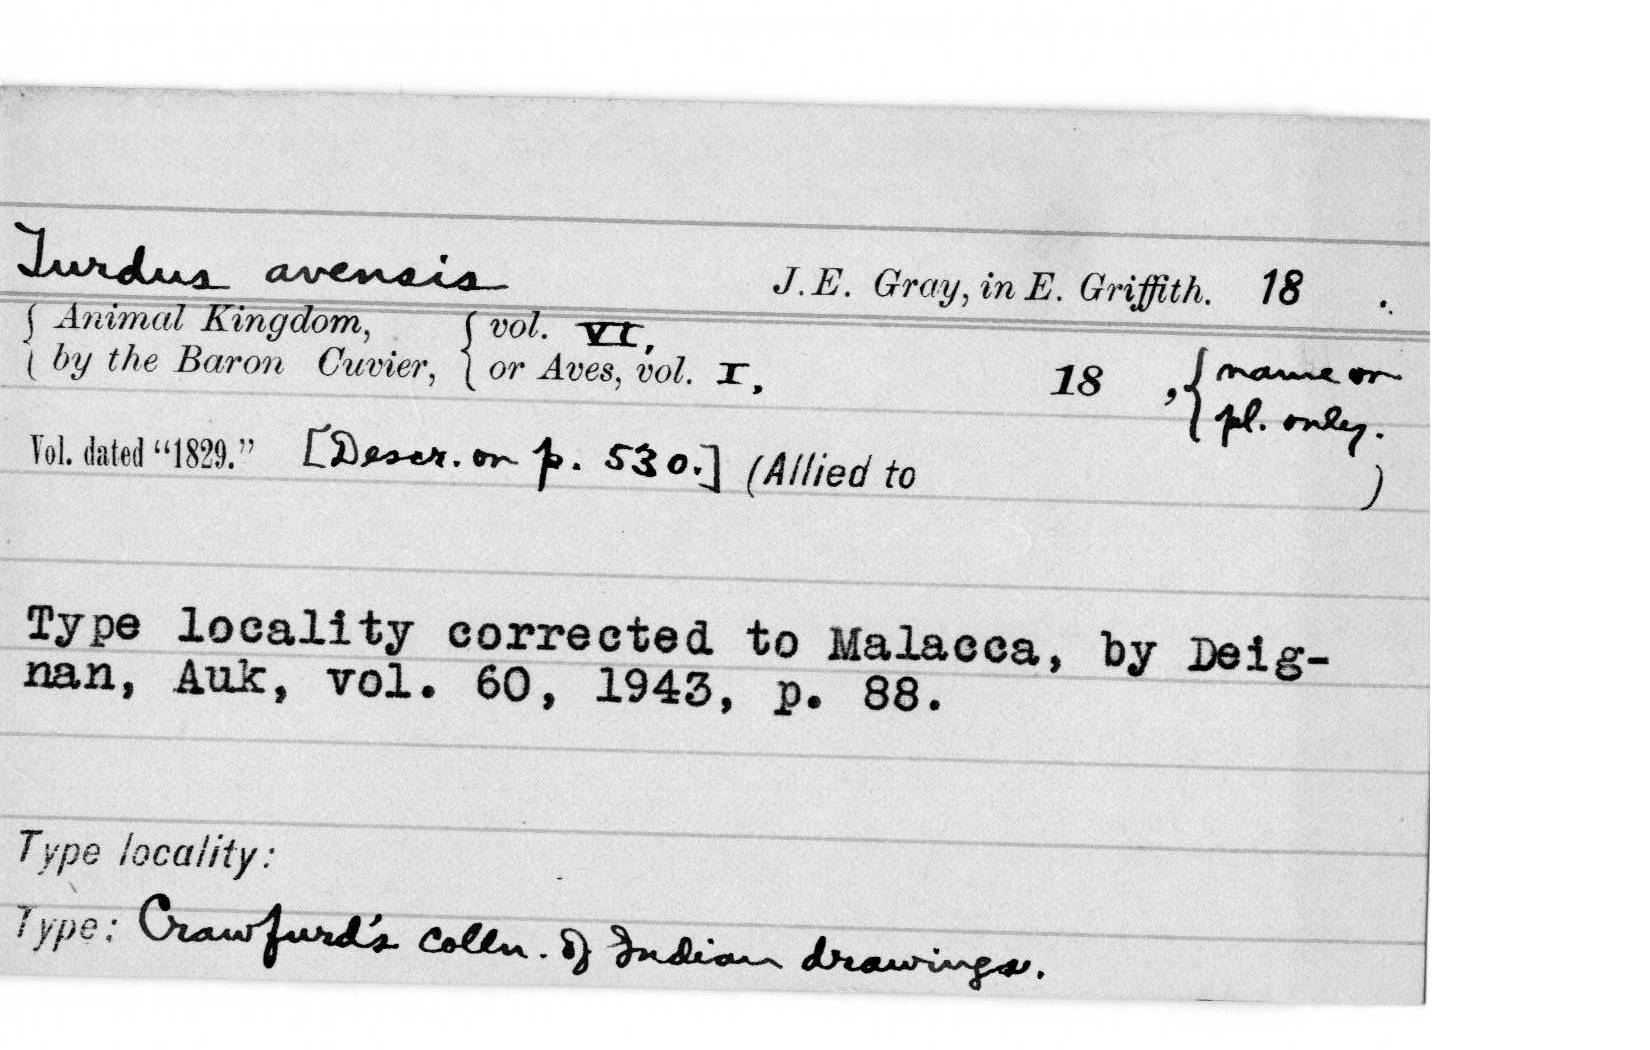 Turdus avensis J.E. Gray, in E. Griffith. 18 .
{ Animal Kingdom, { vol. VI,
{ by the Baron Cuvier, { or Aves, vol. I, 18 , { name on
pl. only.
Vol. dated "1829." [Descr. on p. 530.] (Allied to )
Type locality corrected to Malacca, by Deig-
nan, Auk, vol. 60, 1943, p. 88.
Type locality:
Type: Crawfurd's colln. of Indian drawings.